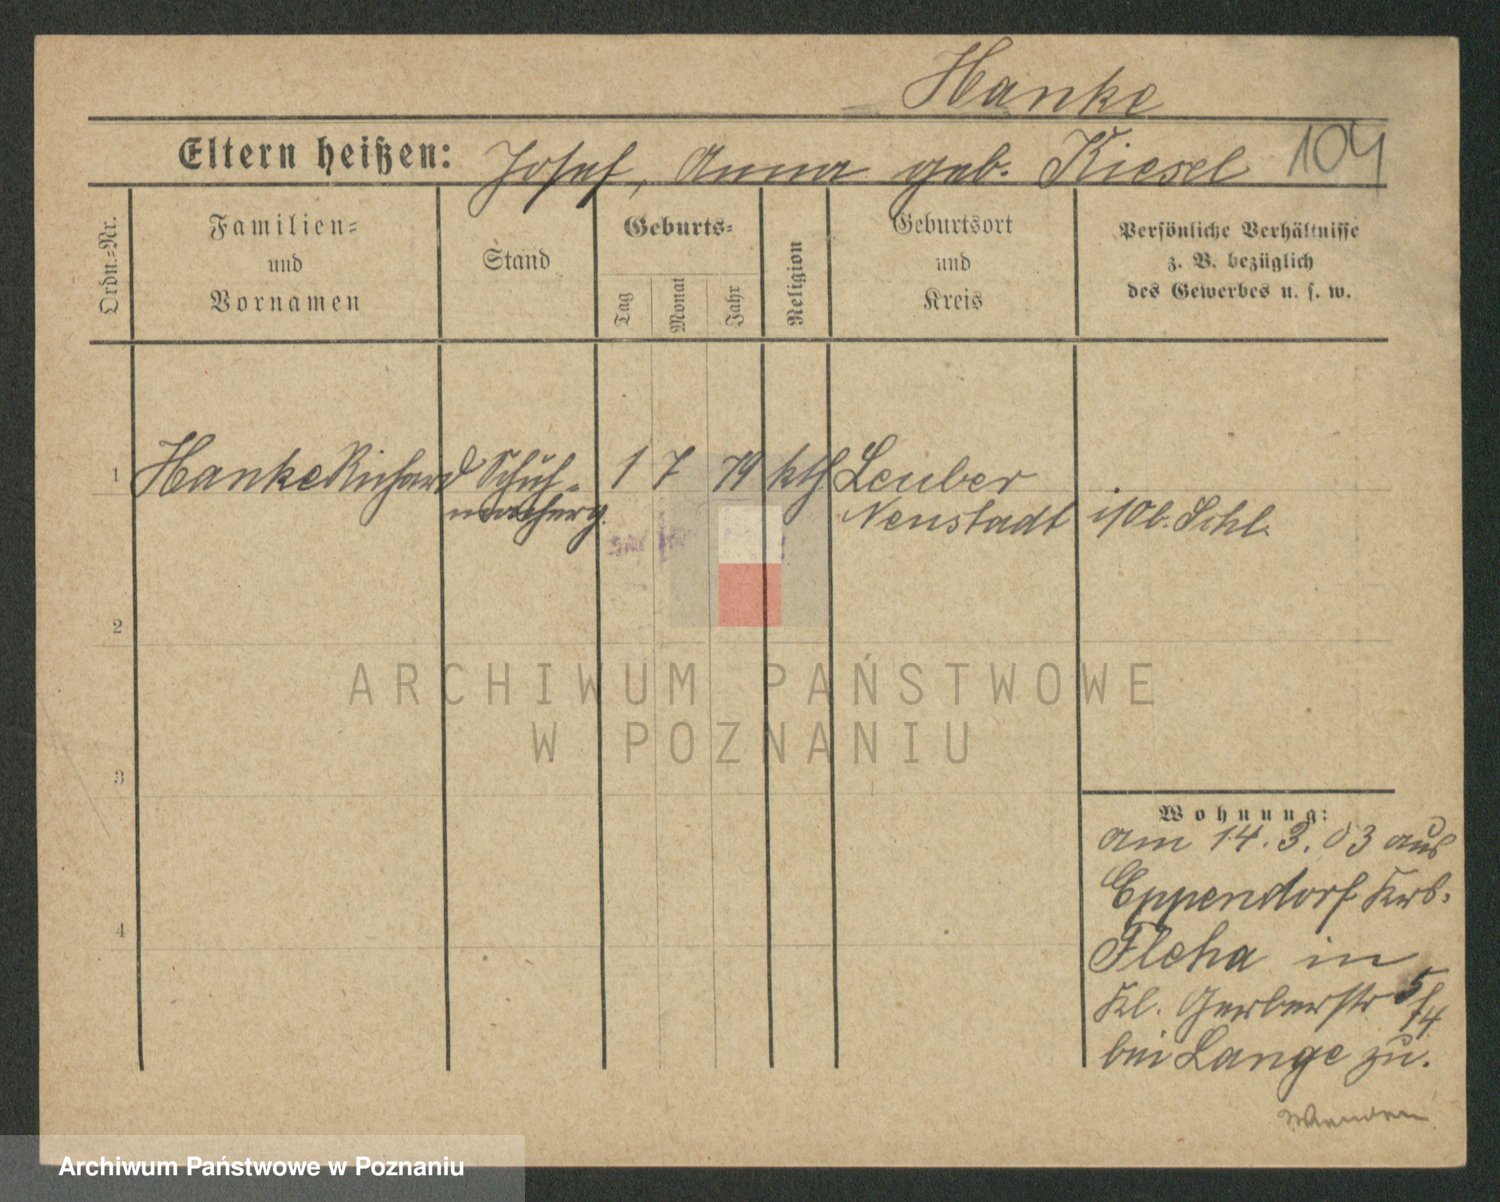 Hanke
Eltern heißen: Josef, Anna geb. Kiesel 104
Ordn.-Nr.
Familien-
und
Vornamen
Stand
Geburts-
Tag
Monat
Jahr
Religion
Geburtsort
und
Kreis
Persönliche Verhältnisse
z. B. bezüglich
des Gewerbes u. s. w.
1 Hanke Richard Schuh- 1 7 79 kth Leuber
macherg. Neustadt i/Ob. Schl.
2
3
4
Wohnung:
am 14.3.03 aus
Eppendorf Krb.
Fleha in
Kl. Gerberstr 5/14
bei Lange zu.
Wenden
ARCHIWUM PAŃSTWOWE
W POZNANIU
Archiwum Państwowe w Poznaniu